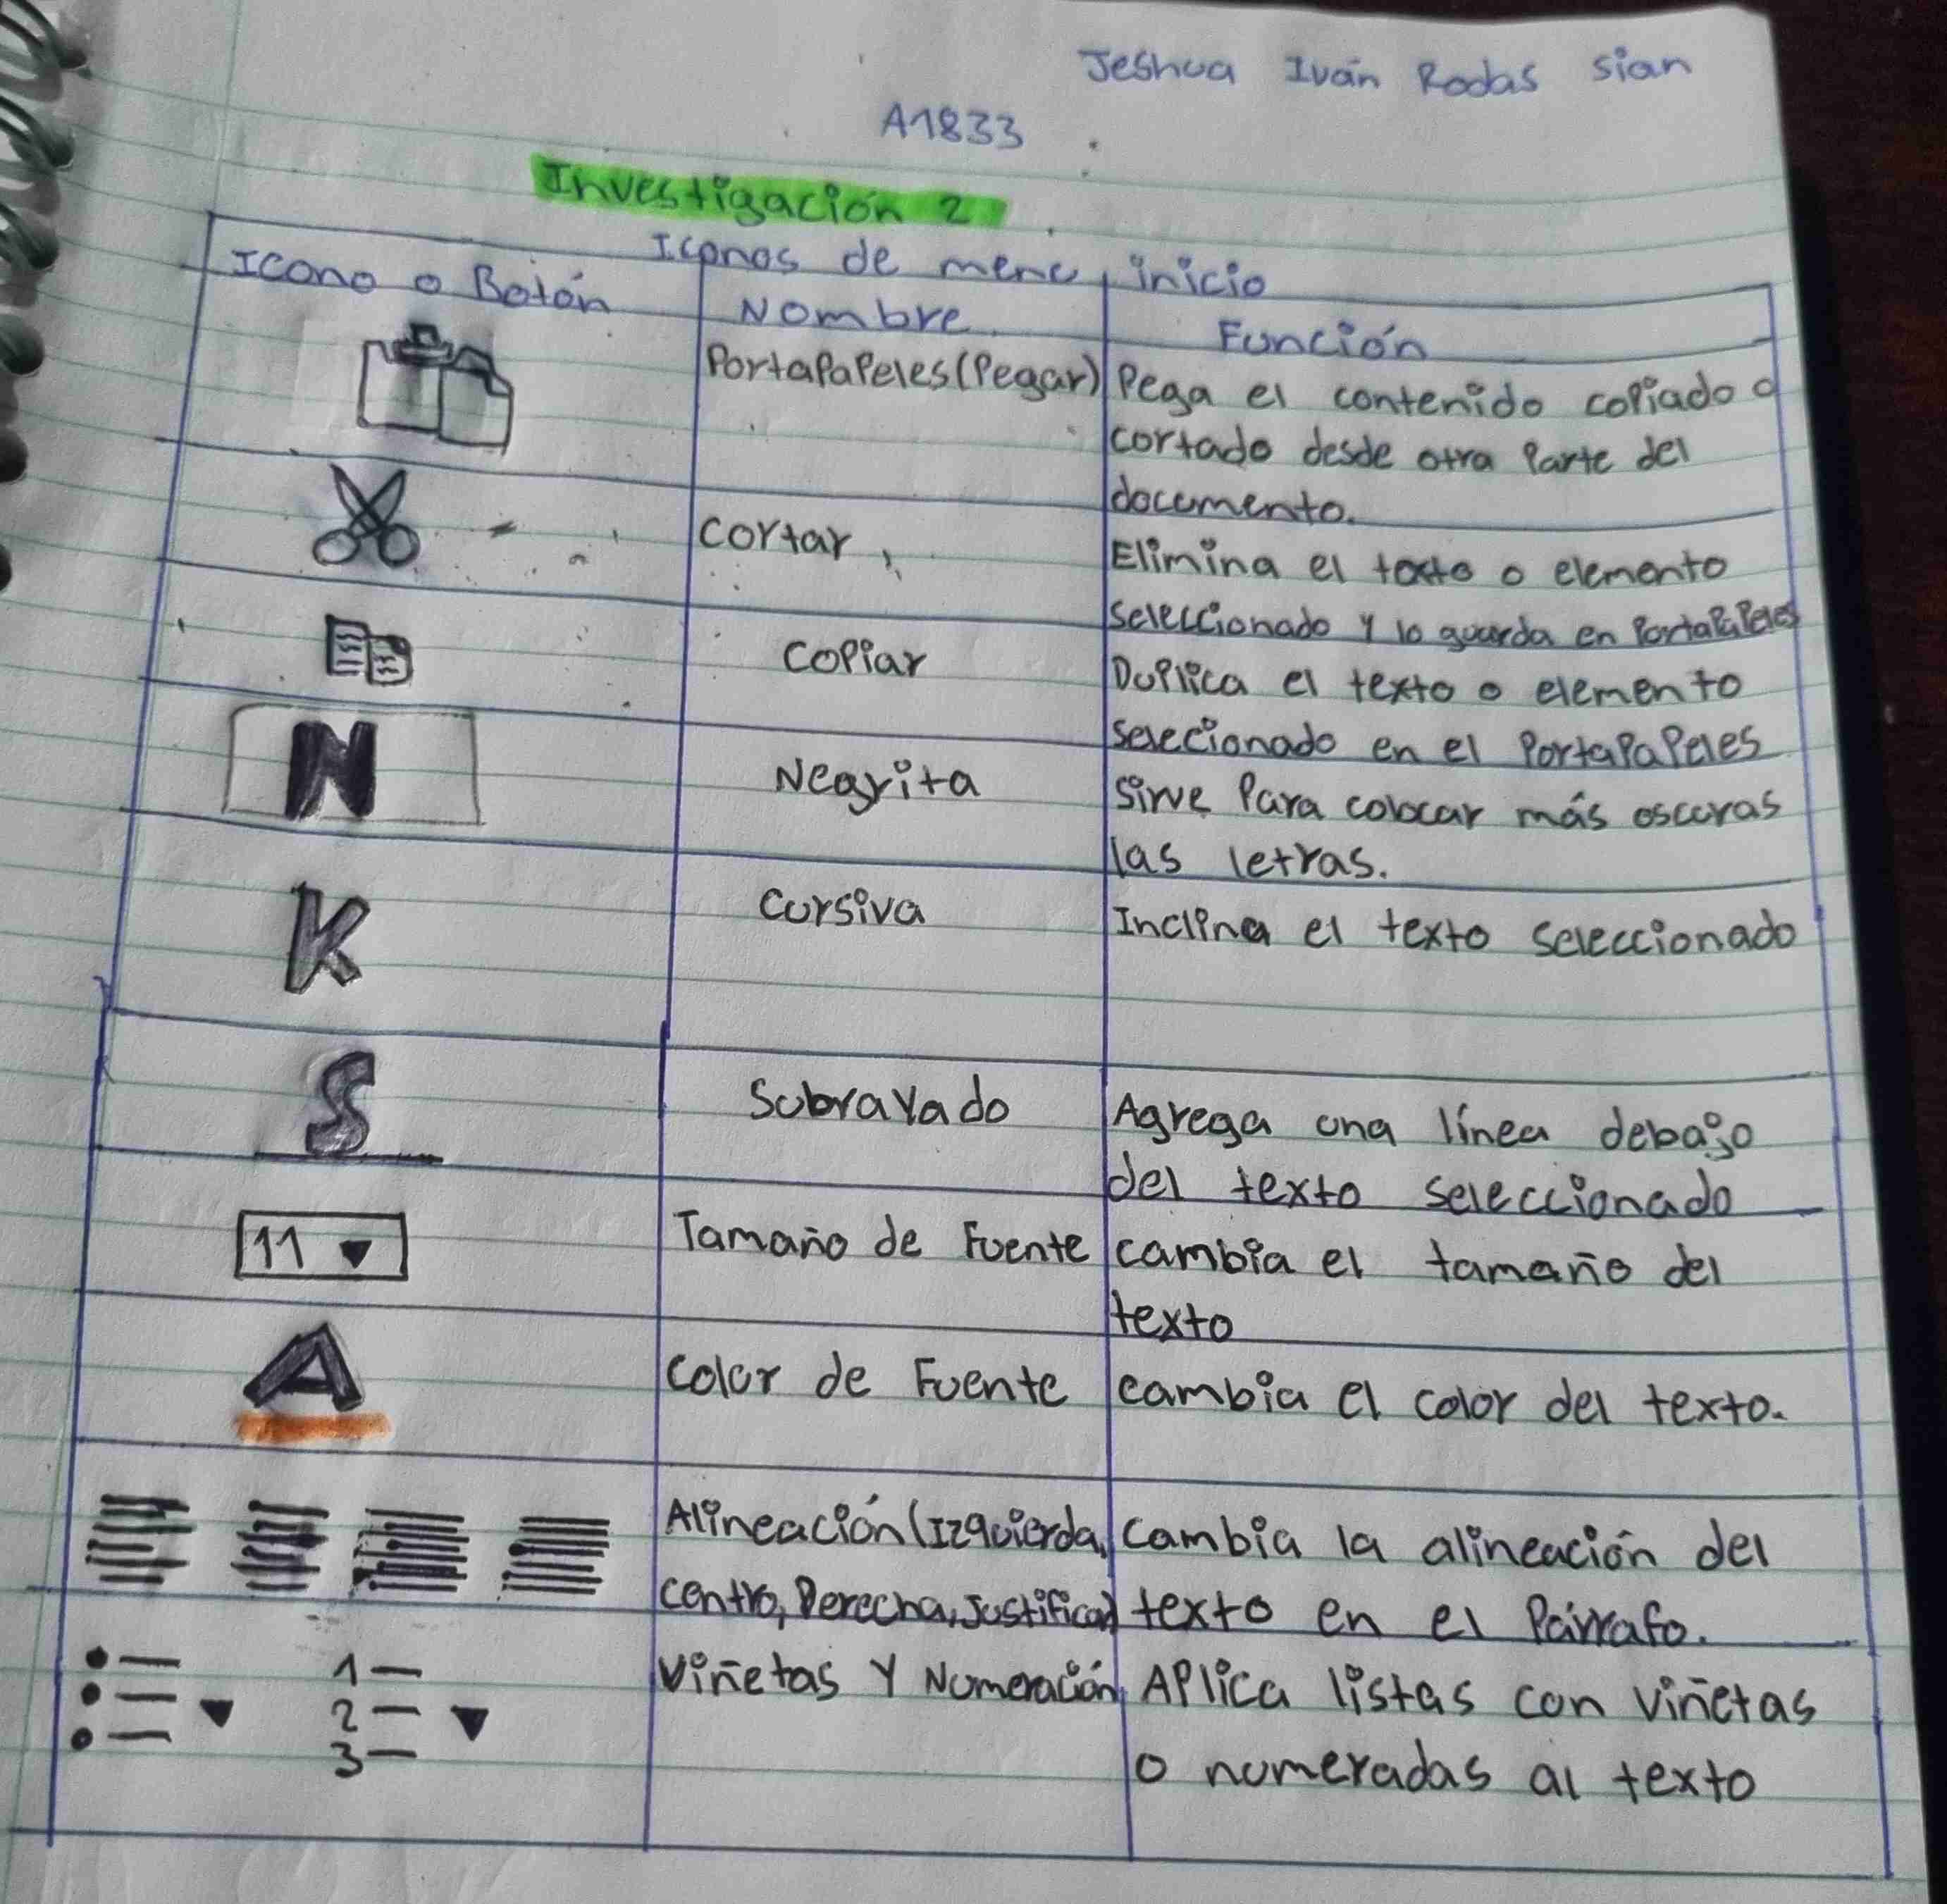 Jeshua Iván Rodas Sian
A1833
Investigación 2
Iconos de menu inicio
Icono o Botón
Nombre
Función
PortaPaPeles (Pegar)
Pega el contenido coPiado o
cortado desde otra Parte del
documento.
cortar
Elimina el texto o elemento
seleccionado y lo guarda en PortaPaPeles
coPiar
DuPlica el texto o elemento
selecionado en el PortaPaPeles
N
Negrita
Sirve Para colocar más oscuras
las letras.
K
cursiva
Inclina el texto seleccionado
S
Subrayado
Agrega una línea debajo
del texto seleccionado
11
Tamaño de Fuente
cambia el tamaño del
texto
A
color de Fuente
cambia el color del texto.
Alineación (Izquierda,
centro, Derecha, Justificad)
Cambia la alineación del
texto en el Párrafo.
1
2
3
Viñetas y Numeración
APlica listas con viñetas
o numeradas al texto